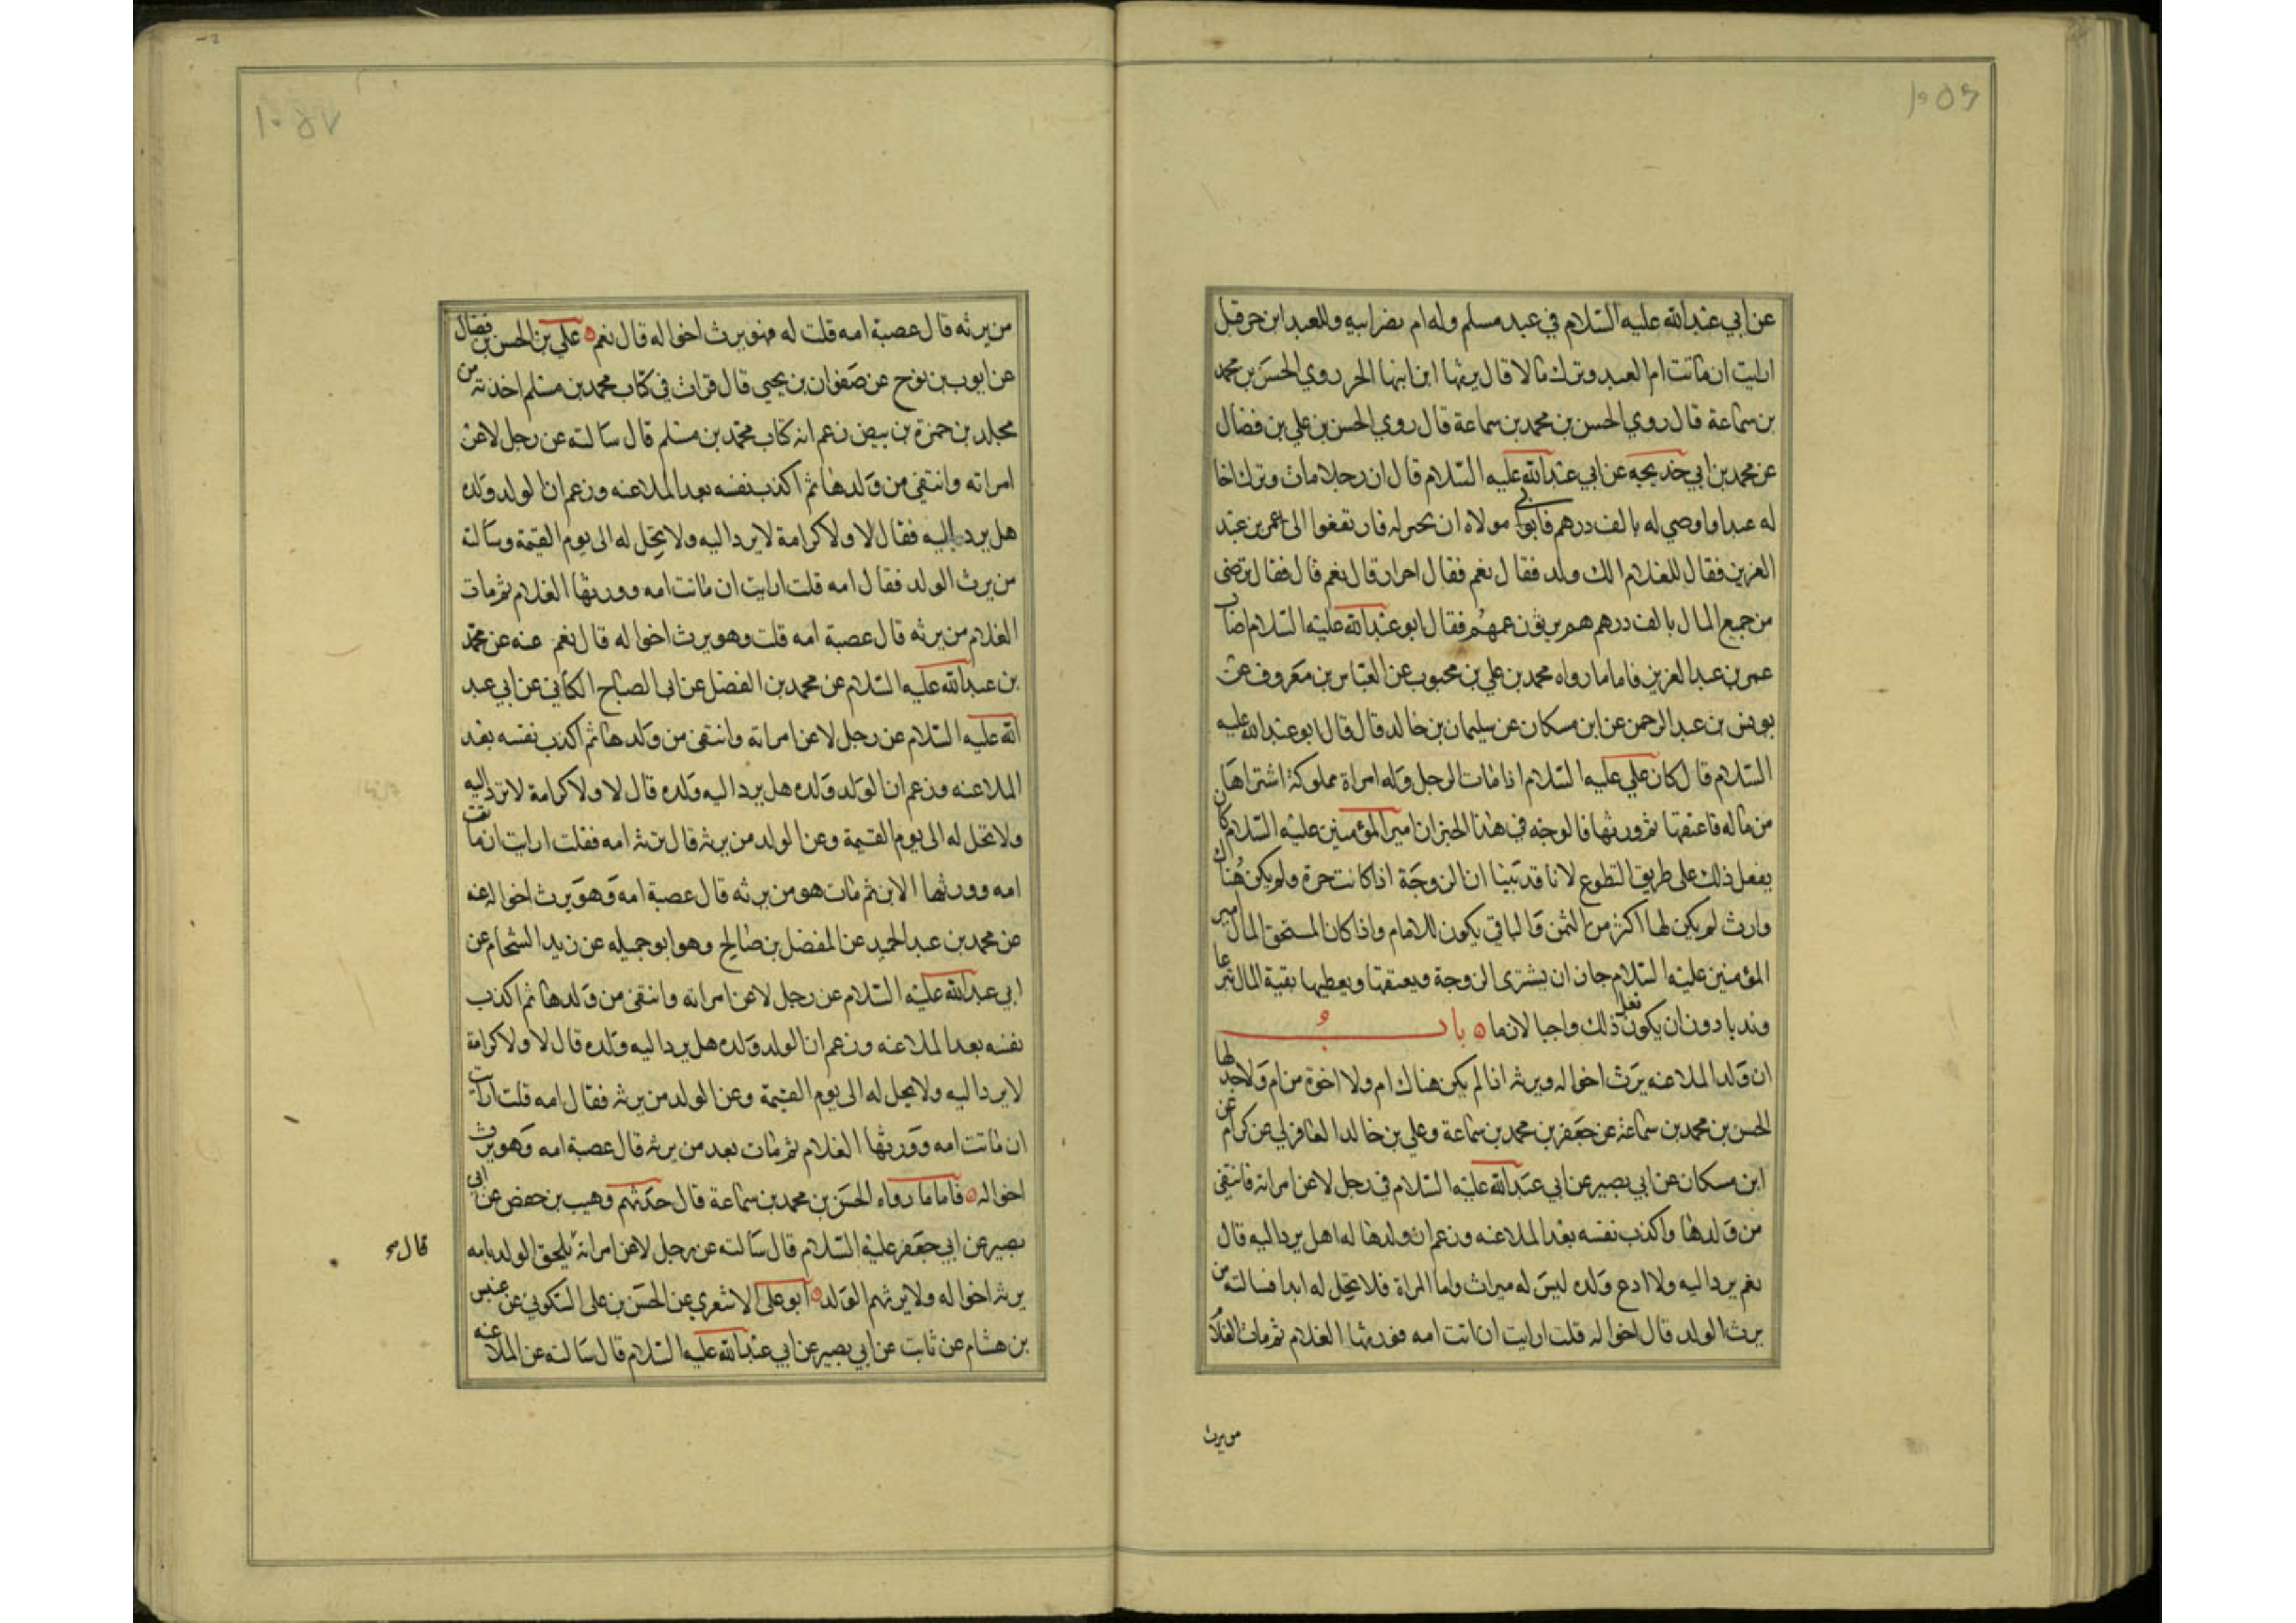 عن ابي عبدالله عليه السلام في عبد مسلم وله ام نصرانيه وللعبد ابن حر قيل
ارايت ان ماتت ام العبد وترك مالا قال يرثها ابن ابنها الحر روي الحسن بن محمد
بن سماعة قال روي الحسن بن محمد بن سماعة قال روي الحسن بن علي بن فضال
عن محمد بن ابي خديجه عن ابي عبدالله عليه السلام قال ان رجلا مات وترك اخا
له عبدا واوصي له بالف درهم فابوا مولاه ان يحيز له فارتفعوا الى عمر بن عبد
العزيز فقال للغلام الك ولد فقال نعم فقال احرار قال نعم قال فقال ترضى
من جميع المال بالف درهم هم يرثون عمهم فقال ابو عبدالله عليه السلام اصاب
عمر بن عبدالعزيز فاما ما رواه محمد بن علي بن محبوب عن العباس بن معروف عن
يونس بن عبدالرحمن عن ابن مسكان عن سليمان بن خالد قال قال ابو عبدالله عليه
السلام قال كان علي عليه السلام اذا مات الرجل وله امراة مملوكة اشتراها
من ماله فاعتقها ثم ورثها فالوجه في هذا الخبر ان امير المؤمنين عليه السلام كان
يفعل ذلك على طريق التطوع لانا قد بينا ان الزوجة اذا كانت حرة ولم يكن هناك
وارث لم يكن لها اكثر من الثمن والباقي يكون للامام واذا كان المستحق المال امير
المؤمنين عليه السلام جاز ان يشترى الزوجة ويعتقها ويعطيها بقية المال تبرعا
وندبا دون ان يكون فعل ذلك واجبا لازما باب
ان ولد الملاعنه يرث اخواله ويرثه اذا لم يكن هناك ام ولا اخوة من ام ولا جد لها
الحسن بن محمد بن سماعة عن جعفر بن محمد بن سماعة وعلي بن خالد العاقولي عن كرام عن
ابن مسكان عن ابي بصير عن ابي عبدالله عليه السلام في رجل لاعن امراته فانتفى
من ولدها واكذب نفسه بعد الملاعنه وزعم ان ولدها له اهل يرد اليه قال
نعم يرد اليه ولا ادع ولده ليس له ميراث واما المراة فلا تحل له ابدا فسالته من
يرث الولد قال اخواله قلت ارايت ان اتت امه فورثها الغلام ثم مات الغلام
من يرث
من يرثه قال عصبة امه قلت له فهو يرث اخواله قال نعم علي بن الحسن بن فضال
عن ايوب بن نوح عن صفوان بن يحيي قال قرات في كتاب محمد بن مسلم اخذته من
مخلد بن حمزة بن بيض زعم انه كتاب محمد بن مسلم قال سالته عن رجل لاعن
امراته وانتفي من ولدها ثم اكذب نفسه بعد الملاعنه وزعم ان الولد ولده
هل يرد اليه فقال لا ولا كرامة لا يرد اليه ولا تحل له الى يوم القيمة وسالته
من يرث الولد فقال امه قلت ارايت ان ماتت امه وورثها الغلام ثم مات
الغلام من يرثه قال عصبة امه قلت وهو يرث اخواله قال نعم عنه عن محمد
بن عبدالله عليه السلام عن محمد بن الفضل عن ابي الصباح الكناني عن ابي عبد
الله عليه السلام عن رجل لاعن امراته وانتفى من ولدها ثم اكذب نفسه بعد
الملاعنه وزعم ان الولد ولده هل يرد اليه ولده قال لا ولا كرامة لا يرد اليه
ولا تحل له الى يوم القيمة وعن الولد من يرثه قال ترثه امه فقلت ارايت ان ماتت
امه وورثها الابن ثم مات هو من يرثه قال عصبة امه وهو يرث اخواله عنه
عن محمد بن عبدالحميد عن المفضل بن صالح وهو ابو جميله عن زيد الشحام عن
ابي عبدالله عليه السلام عن رجل لاعن امراته وانتفى من ولدها ثم اكذب
نفسه بعد الملاعنه وزعم ان الولد ولده هل يرد اليه ولده قال لا ولا كرامة
لا يرد اليه ولا يحل له الى يوم القيمة وعن الولد من يرثه فقال امه قلت ارايت
ان ماتت امه وورثها الغلام ثم مات بعد من يرثه قال عصبة امه وهو يرث
اخواله فاما ما رواه الحسن بن محمد بن سماعة قال حدثهم وهيب بن حفص عن ابي
بصير عن ابي جعفر عليه السلام قال سالته عن رجل لاعن امراته يلحق الولد بامه
قال
يرثه اخواله ولا يرثهم الولد ابو علي الاشعري عن الحسن بن علي الكوني عن عبيس
بن هشام عن ثابت عن ابي بصير عن ابي عبدالله عليه السلام قال سالته عن الملاعنه